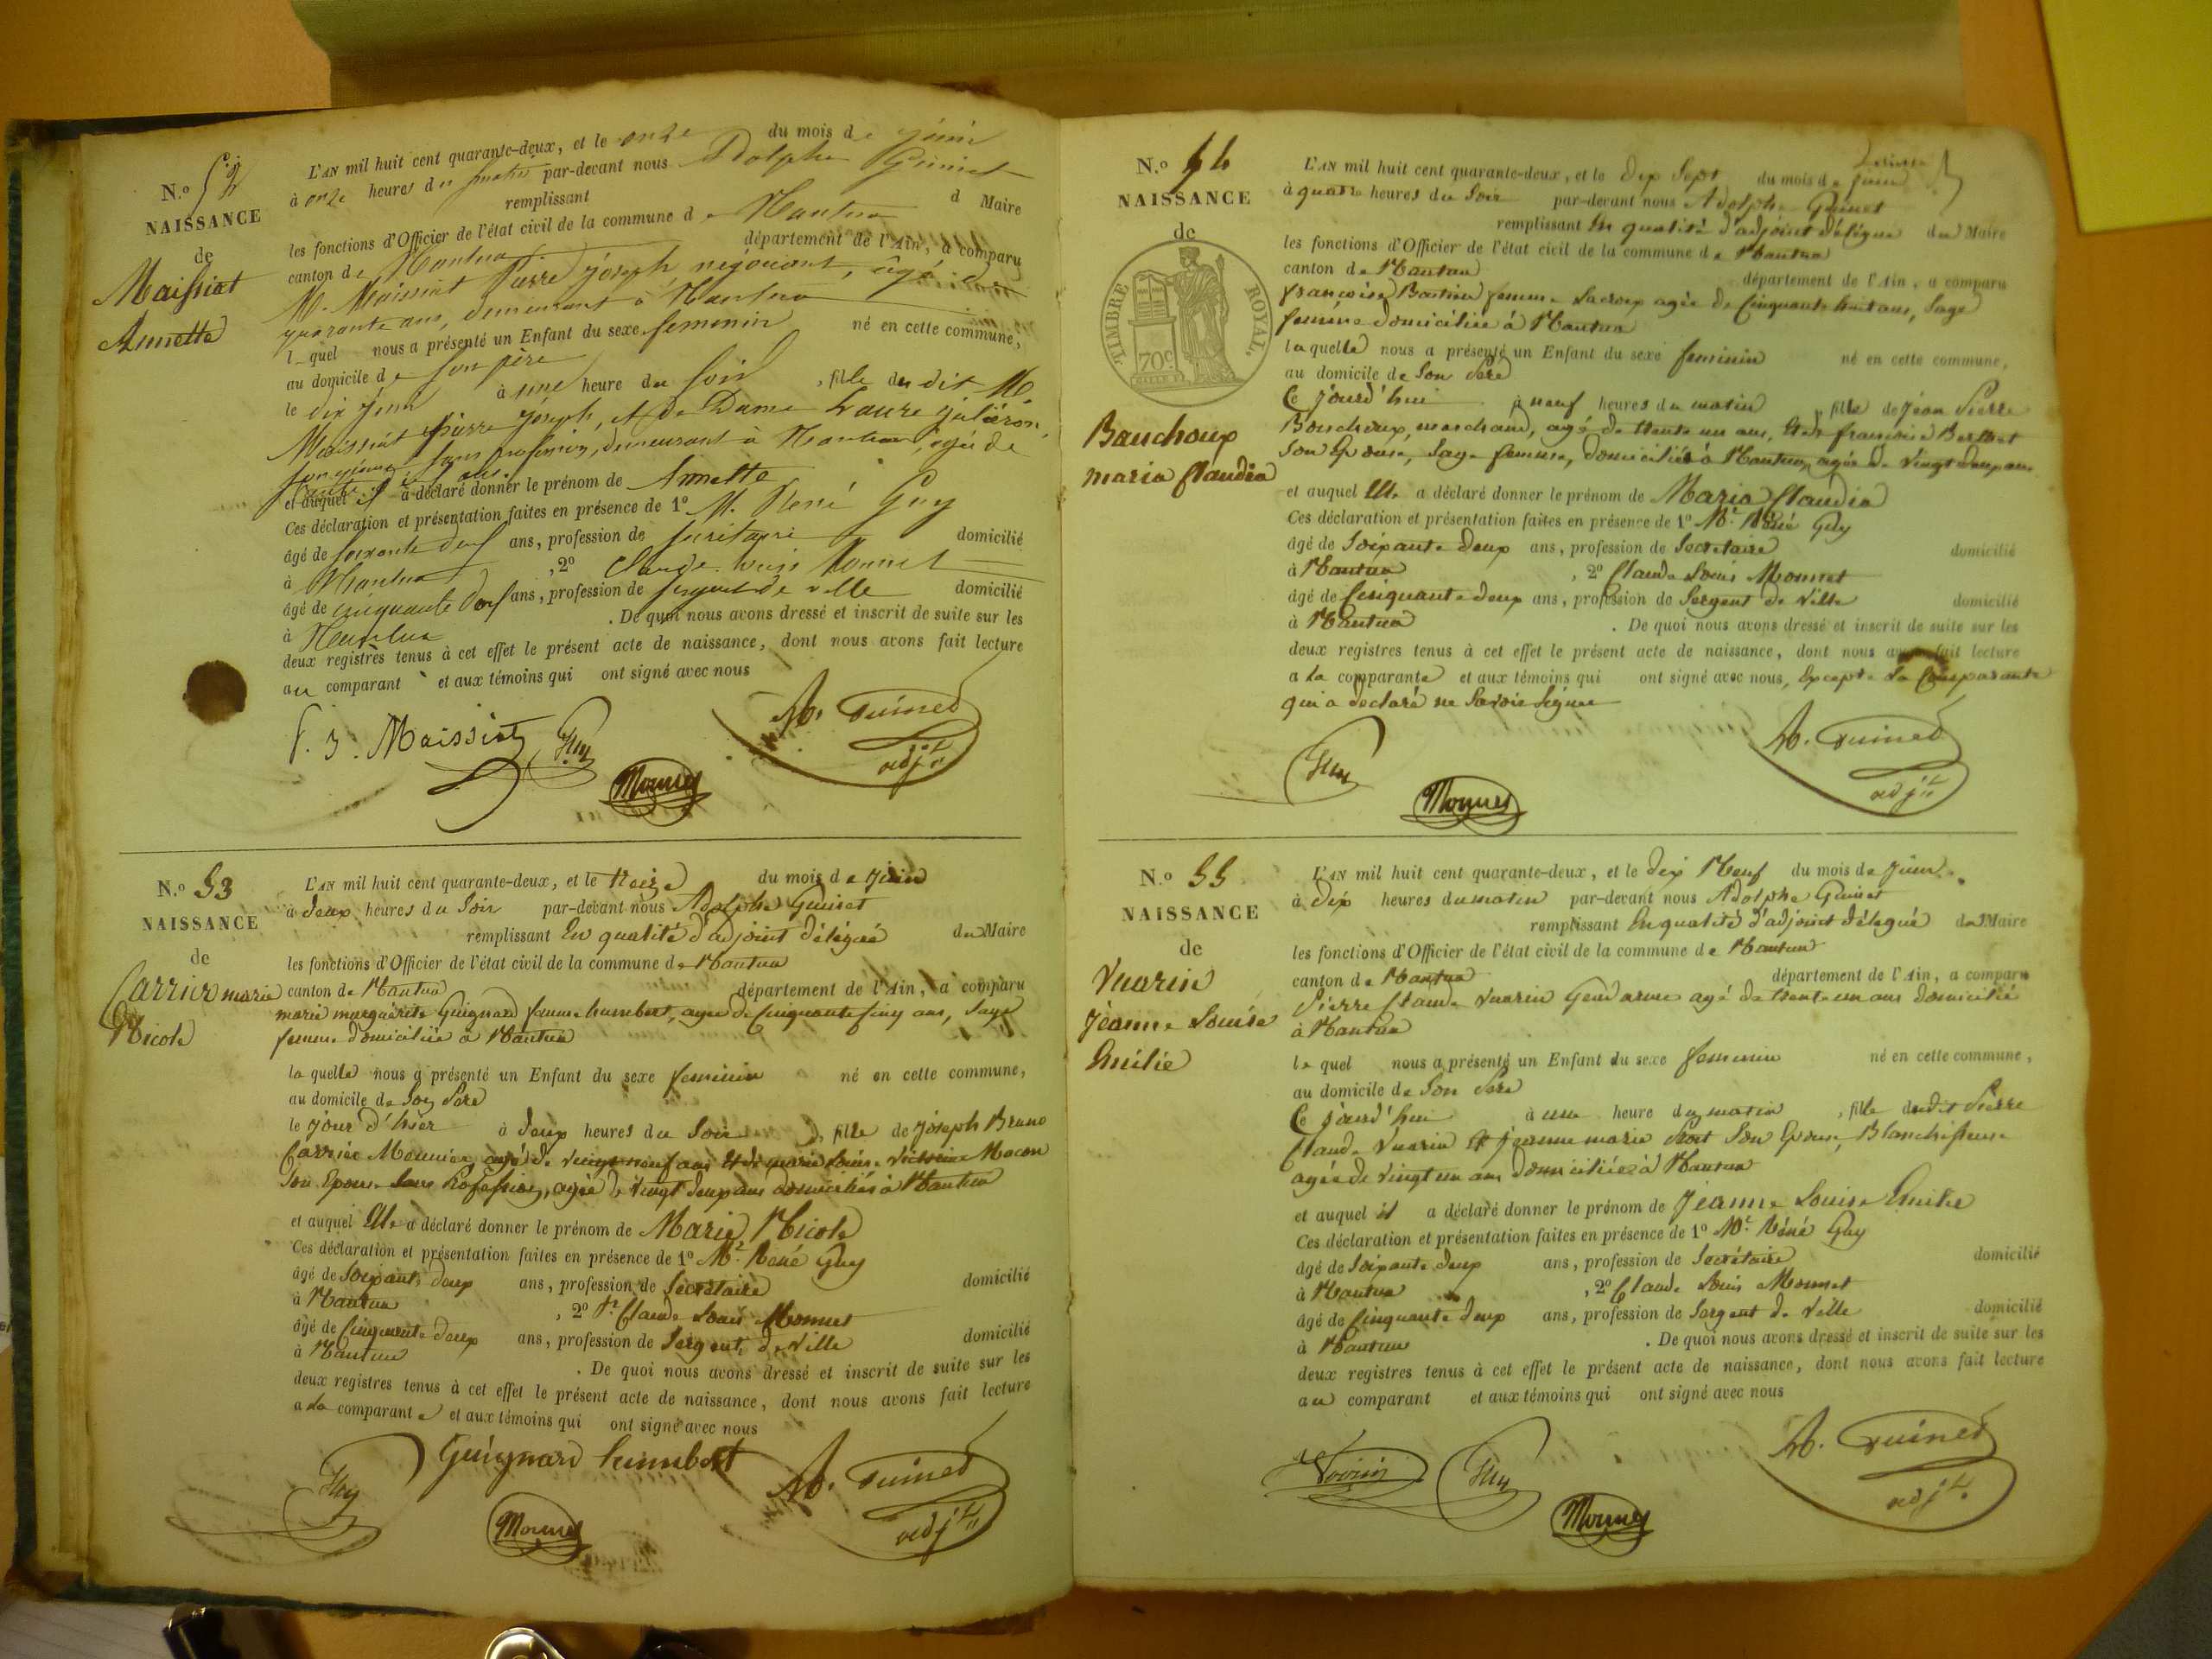 N.o 52
NAISSANCE
de
Maissiat
Annette
L'AN mil huit cent quarante-deux, et le onze du mois de juin
à onze heures du matin par-devant nous Adolphe Guinet
remplissant d Maire
les fonctions d'Officier de l'état civil de la commune de Nantua
canton de Nantua département de l'Ain, a comparu
M. Maissiat Pierre joseph négociant, âgé de
quarante ans, demeurant à Nantua
l quel nous a présenté un Enfant du sexe feminin né en cette commune,
au domicile de son père
le dix juin à une heure du soir, fille du dit M.
Maissiat pierre joseph, et de Dame Laure
sans profession, demeurant à Nantua, agée de
ans.
et auquel il a déclaré donner le prénom de Annette
Ces déclaration et présentation faites en présence de 1o M. René Guy
âgé de soixante deux ans, profession de secrétaire domicilié
à Nantua, 2o Claude Louis Monnet
âgé de cinquante deux ans, profession de sergent de ville domicilié
à Nantua. De quoi nous avons dressé et inscrit de suite sur les
deux registres tenus à cet effet le présent acte de naissance, dont nous avons fait lecture
au comparant et aux témoins qui ont signé avec nous
P. J. Maissiat Guy Monnet A. Guinet adjt
N.o 53
NAISSANCE
de
Carrier marie
Nicole
L'AN mil huit cent quarante-deux, et le treize du mois de juin
à deux heures du Soir par-devant nous Adolphe Guinet
remplissant En qualité d'adjoint délégué du Maire
les fonctions d'Officier de l'état civil de la commune de Nantua
canton de Nantua département de l'Ain, a comparu
marie marguerite Guignard femme humbert, agée de Cinquante cinq ans, Sage
femme domiciliée à Nantua
la quelle nous a présenté un Enfant du sexe feminin né en cette commune,
au domicile de Son Père
le jour d'hier à deux heures du Soir, fille de joseph Bruno
Carrier Meunier, agé de vingt neuf ans et de marie Louise Victoire Macon
Son Epouse Sans Profession, agée de vingt deux ans domiciliés à Nantua
et auquel Elle a déclaré donner le prénom de Marie Nicole
Ces déclaration et présentation faites en présence de 1o Mr. René Guy
âgé de Soixante deux ans, profession de Secrétaire domicilié
à Nantua, 2o Sr. Claude Louis Monnet
âgé de Cinquante deux ans, profession de Sergent de Ville domicilié
à Nantua. De quoi nous avons dressé et inscrit de suite sur les
deux registres tenus à cet effet le présent acte de naissance, dont nous avons fait lecture
a la comparante et aux témoins qui ont signé avec nous
Guignard humbert
Guy Monnet A. Guinet adjt
N.o 54
NAISSANCE
de
TIMBRE ROYAL
70c
Bauchoup
maria Claudia
L'AN mil huit cent quarante-deux, et le dix Sept du mois de juin
à quatre heures du Soir par-devant nous Adolphe Guinet
remplissant En qualité d'adjoint délégué du Maire
les fonctions d'Officier de l'état civil de la commune de Nantua
canton de Nantua département de l'Ain, a comparu
françoise femme Lacroix agée de Cinquante huit ans, Sage
femme domiciliée à Nantua
la quelle nous a présenté un Enfant du sexe feminin né en cette commune,
au domicile de Son Père
Ce jourd'hui à neuf heures du matin, fille de jean Pierre
marchand, agé de trente un ans, et de françoise
Son Epouse, Sage femme, domiciliés à Nantua, agée de vingt deux ans
et auquel Elle a déclaré donner le prénom de Maria Claudia
Ces déclaration et présentation faites en présence de 1o Mr. Réné Guy
âgé de Soixante deux ans, profession de Secretaire domicilié
à Nantua, 2o Claude Louis Monnet
âgé de Cinquante deux ans, profession de Sergent de Ville domicilié
à Nantua. De quoi nous avons dressé et inscrit de suite sur les
deux registres tenus à cet effet le présent acte de naissance, dont nous avons fait lecture
a la comparante et aux témoins qui ont signé avec nous, Excepté la Comparante
qui a déclaré ne Savoir Signer
Guy Monnet A. Guinet adjt
N.o 55
NAISSANCE
de
Vuarin
jeanne Louise
Emilie
L'AN mil huit cent quarante-deux, et le dix Neuf du mois de juin
à dix heures du matin par-devant nous Adolphe Guinet
remplissant En qualité d'adjoint délégué du Maire
les fonctions d'Officier de l'état civil de la commune de Nantua
canton de Nantua département de l'Ain, a comparu
Pierre Claude Vuarin Gendarme agé de trente un ans domicilié
à Nantua
le quel nous a présenté un Enfant du sexe feminin né en cette commune,
au domicile de Son Père
Ce jourd'hui à une heure du matin, fille dudit Pierre
Claude Vuarin Et jeanne marie Son Epouse, Blanchisseuse
agée de vingt un ans domiciliés à Nantua
et auquel il a déclaré donner le prénom de Jeanne Louise Emilie
Ces déclaration et présentation faites en présence de 1o Mr. Réné Guy
âgé de Soixante deux ans, profession de Secrétaire domicilié
à Nantua, 2o Claude Louis Monnet
âgé de Cinquante deux ans, profession de Sergent de Ville domicilié
à Nantua. De quoi nous avons dressé et inscrit de suite sur les
deux registres tenus à cet effet le présent acte de naissance, dont nous avons fait lecture
au comparant et aux témoins qui ont signé avec nous
Vuarin Guy Monnet A. Guinet adjt.